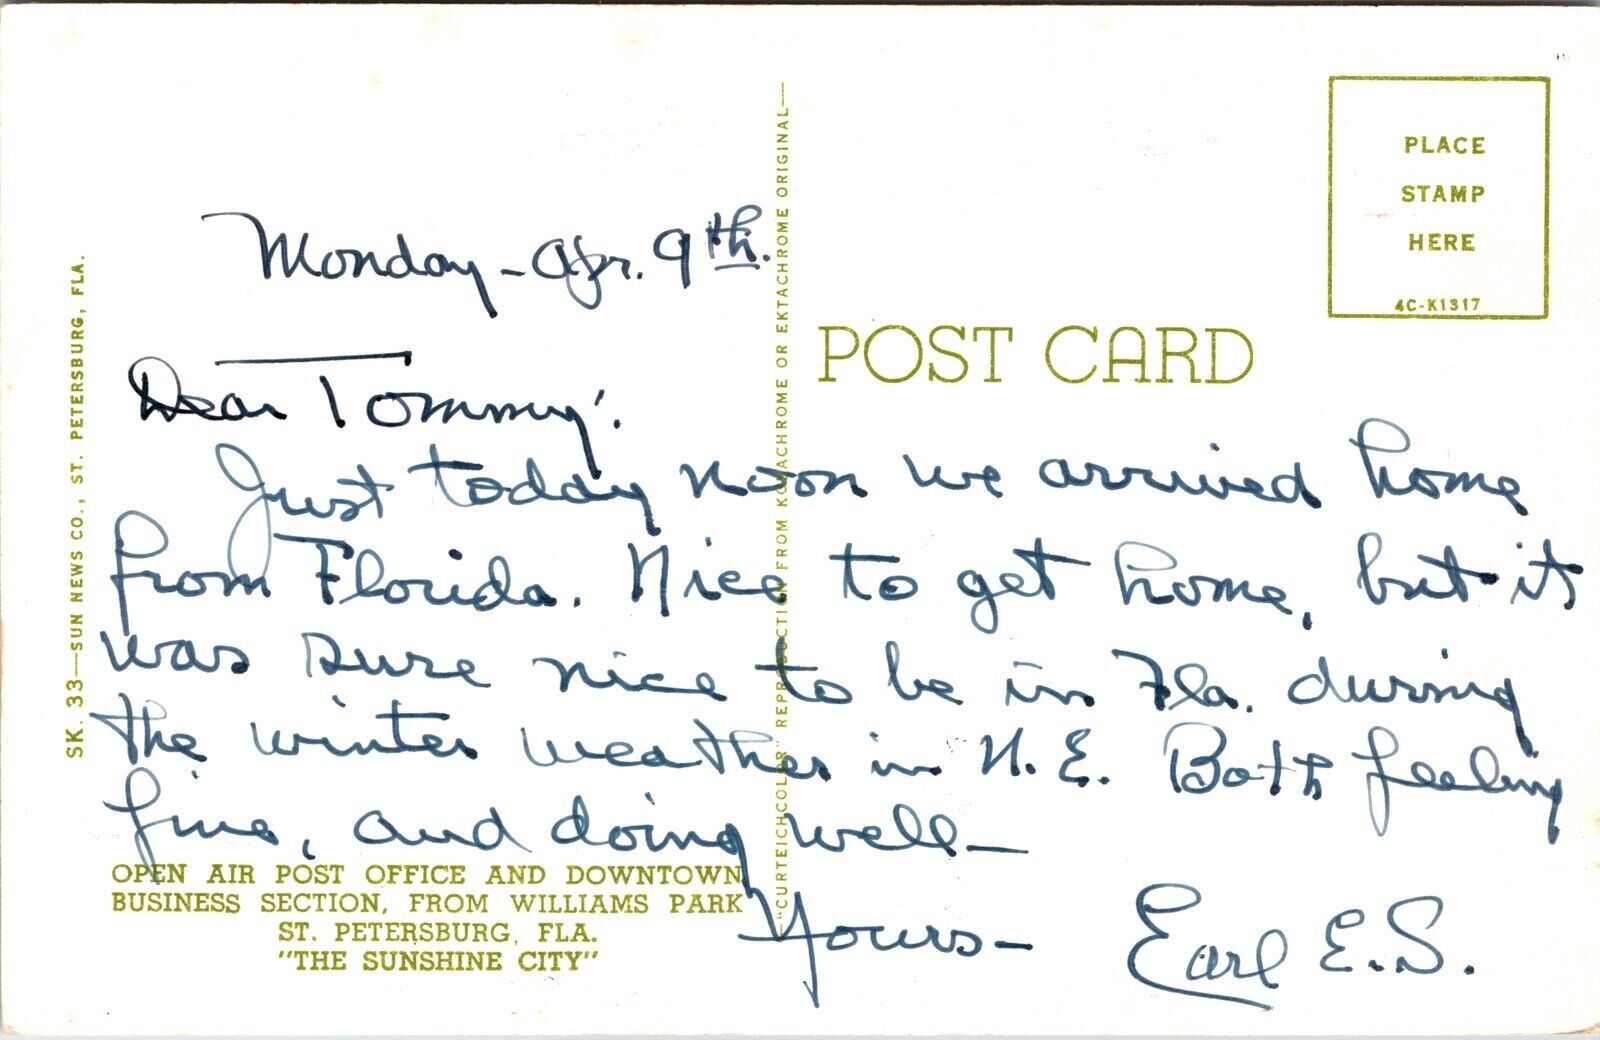 PLACE
STAMP
HERE
4C-K1317
POST CARD
SK. 33—SUN NEWS CO., ST. PETERSBURG, FLA.
—"CURTEICHCOLOR" REPRODUCTION FROM KODACHROME OR EKTACHROME ORIGINAL—
Monday - Apr. 9th.
Dear Tommy:
Just today noon we arrived home
from Florida. Nice to get home, but it
was sure nice to be in Fla. during
the winter weather in N. E. Both feeling
fine, and doing well—
Yours— Earl E.S.
OPEN AIR POST OFFICE AND DOWNTOWN
BUSINESS SECTION, FROM WILLIAMS PARK
ST. PETERSBURG, FLA.
"THE SUNSHINE CITY"